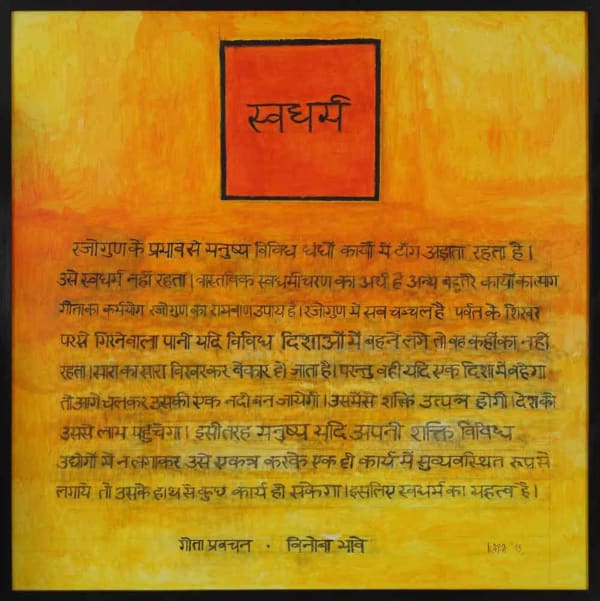 स्वधर्म
रजोगुण के प्रभाव से मनुष्य विविध धंधों कार्यों में टाँग अड़ाता रहता है।
उसे स्वधर्म नहीं रहता। वास्तविक स्वधर्माचरण का अर्थ है अन्य बहुतेरे कार्यों का त्याग
गीता का कर्मयोग रजोगुण का रामबाण उपाय है। रजोगुण में सब चञ्चल है पर्वत के शिखर
पर से गिरनेवाला पानी यदि विविध दिशाओं में बहने लगे तो वह कहीं का नहीं
रहता। सारा का सारा बिखरकर बेकार हो जाता है। परन्तु वही यदि एक दिशा में बहेगा
तो आगे चलकर उसकी एक नदी बन जायेगी। उसमें से शक्ति उत्पन्न होगी। देश को
उससे लाभ पहुँचेगा। इसी तरह मनुष्य यदि अपनी शक्ति विविध
उद्योगों में न लगाकर उसे एकत्र करके एक ही कार्य में सुव्यवस्थित रूप से
लगाये तो उसके हाथ से कुछ कार्य हो सकेगा। इसलिए स्वधर्म का महत्व है।
गीता प्रवचन · विनोबा भावे